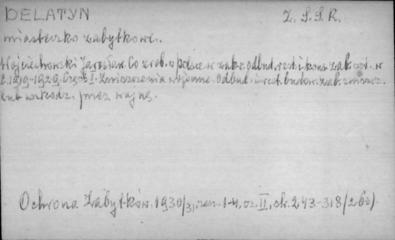 DELATYN Z. S. S. R.
miasteczko zabytkowe.
Wojciechowski Jarosław. Co zrob. w Polsce w zakr. odbud. rest. i kons. zab.
l. 1919-1929. Część I. Zniszczenia wojenne. Odbud. i rest. budow. zab. zniszcz.
lub uszkodz. przez wojnę.
Ochrona Zabytków. 1930/31, zesz. 1-4, cz. II, str. 243-318/(260).